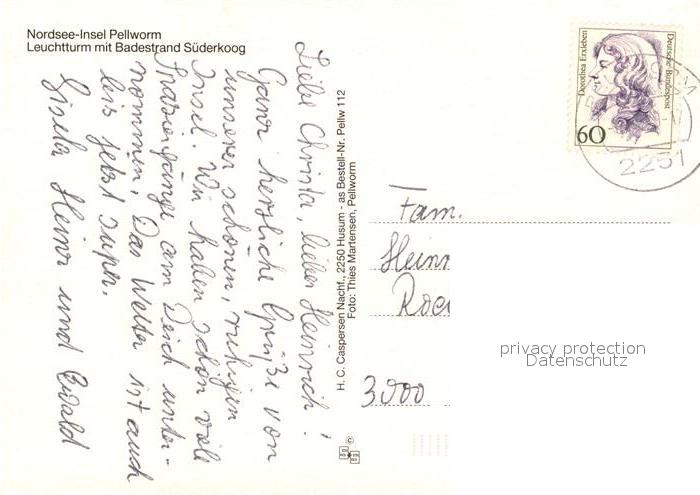 Nordsee-Insel Pellworm
Leuchtturm mit Badestrand Süderkoog
Liebe Christa, lieber Heinrich!
Ganz herzliche Grüße von
unserer schönen, ruhigen
Insel. Wir haben schon viele
Spaziergänge am Deich unter-
nommen. Das Wetter ist auch
bis jetzt super.
Gisela Heinz und Ewald
H. C. Caspersen Nachf., 2250 Husum - as Bestell-Nr. Pellw 112
Foto: Thies Martensen, Pellworm
Dorothea Erxleben
Deutsche Bundespost
60
2251
Fam.
3000
privacy protection
Datenschutz
©